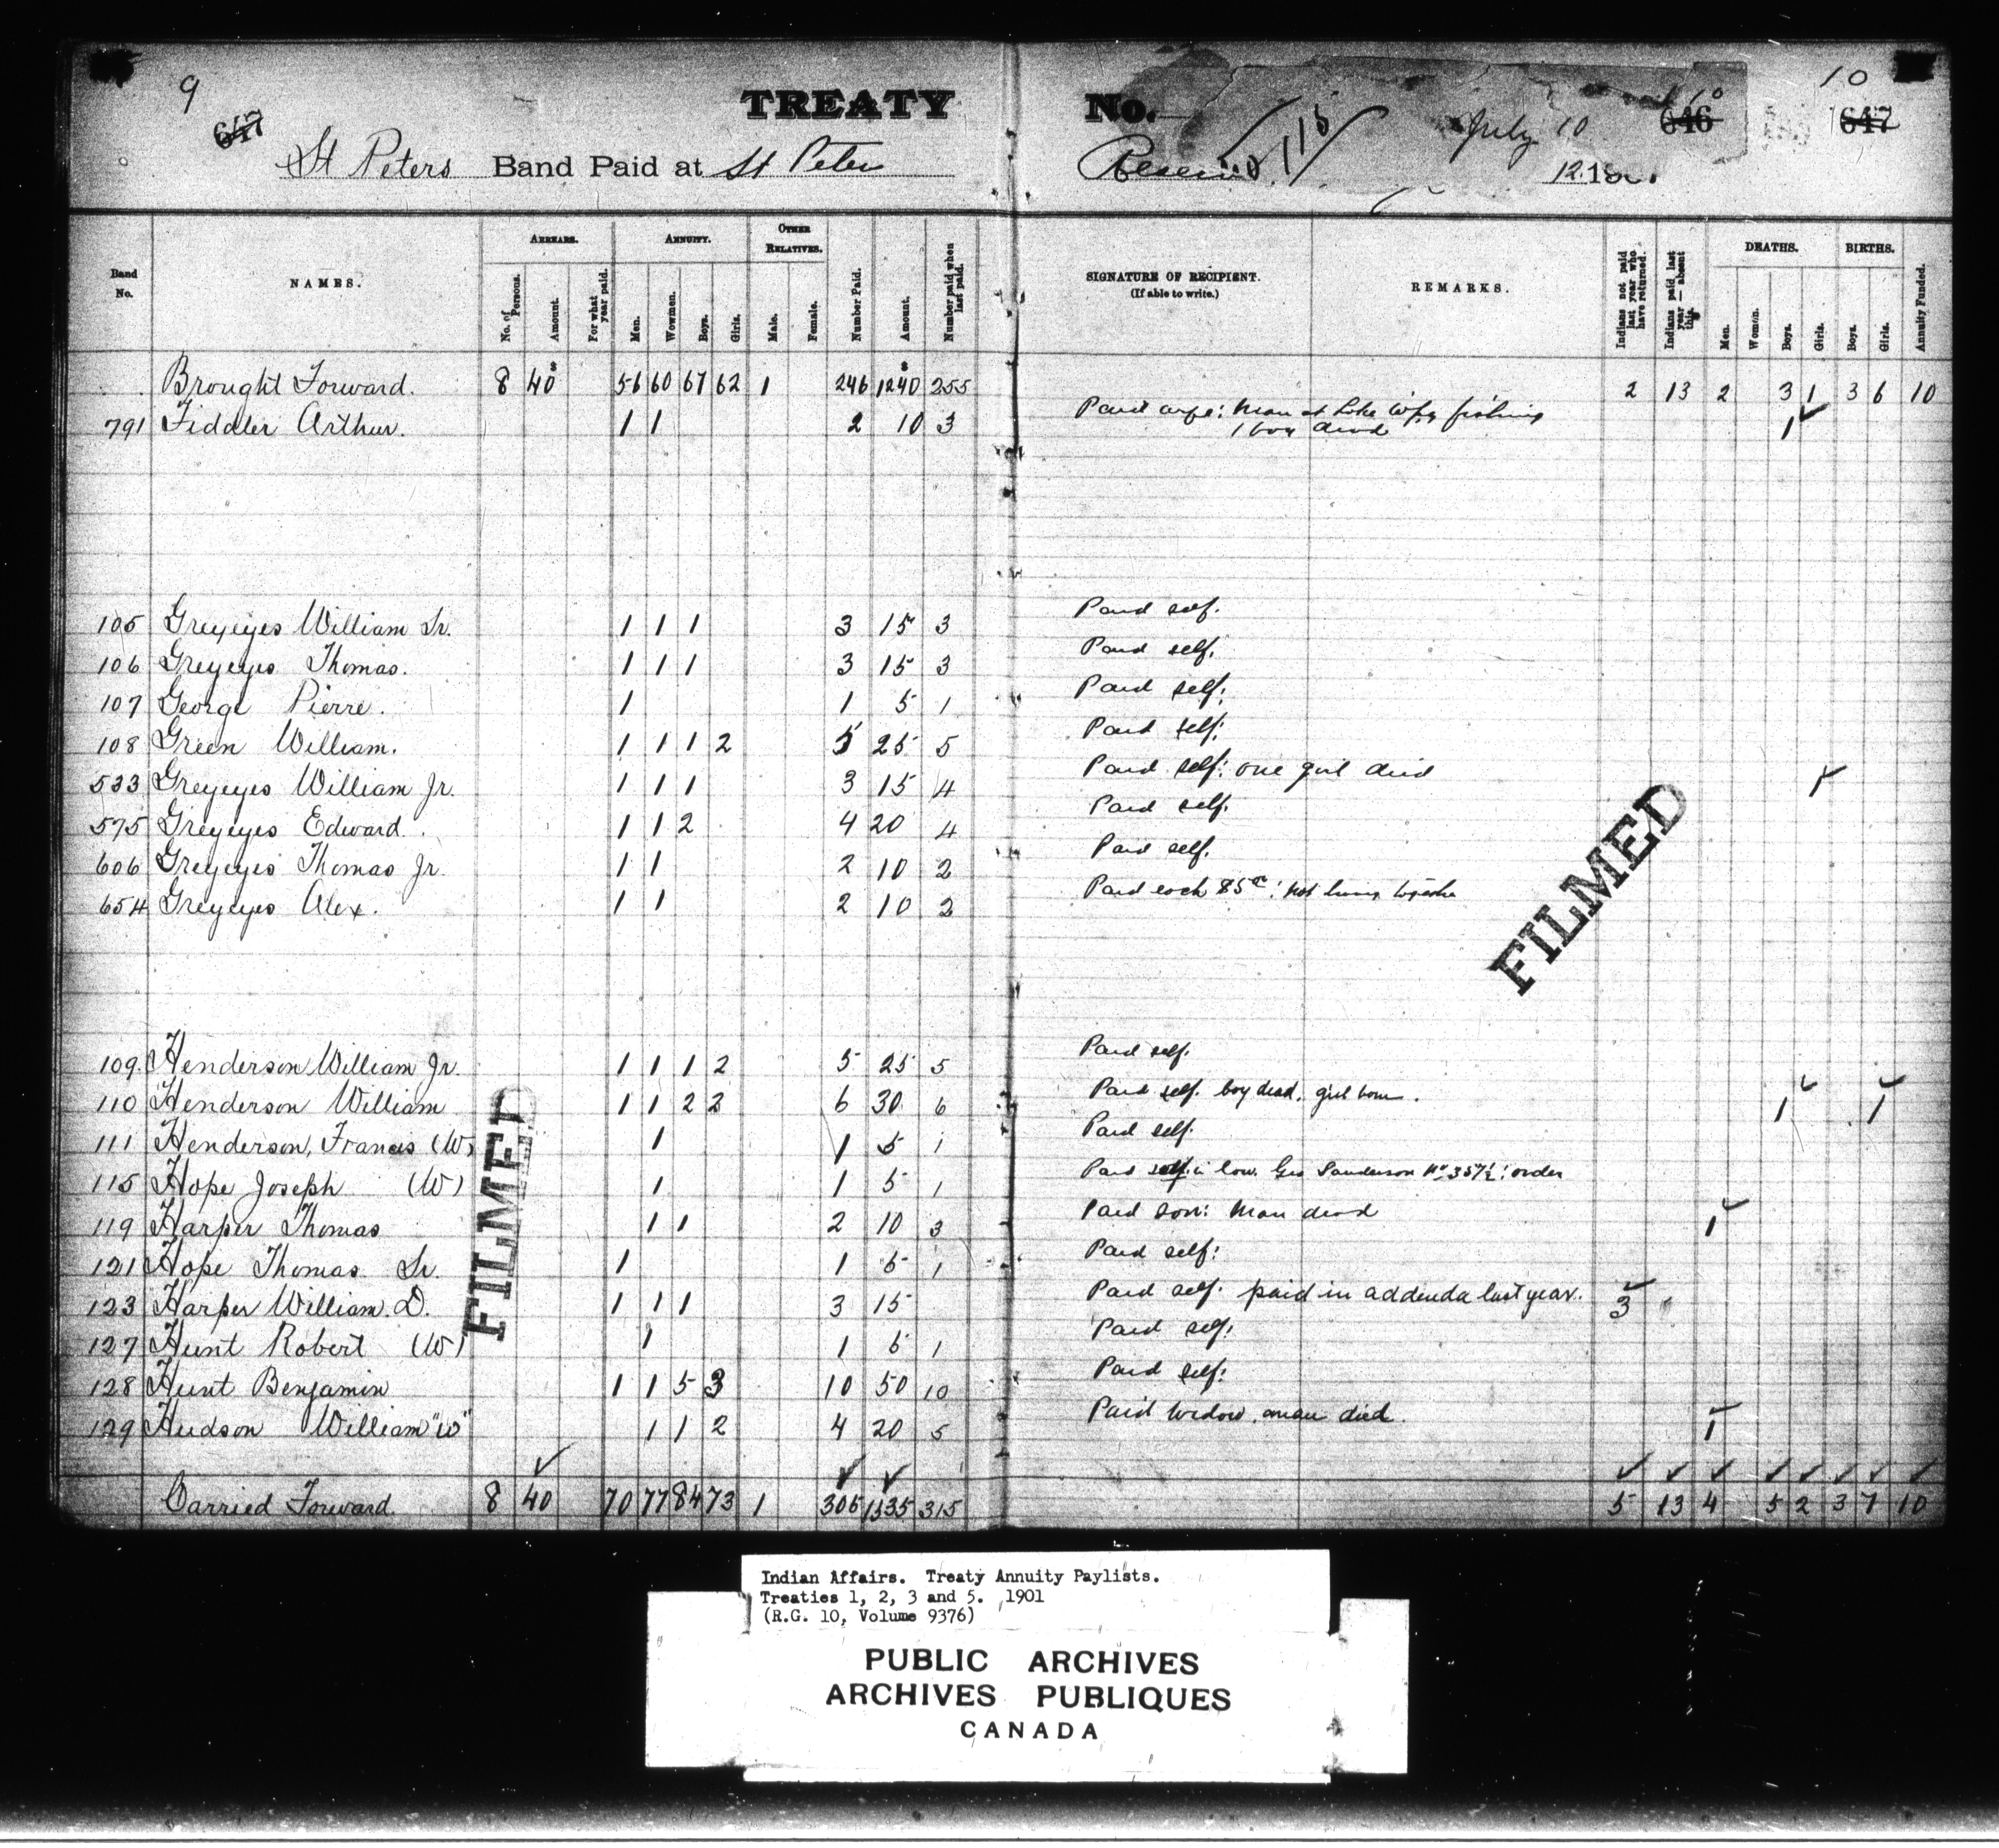 9 TREATY No. 115 July 10 10 646 10 647
647
St Peters Band Paid at St Peter Reserve 12.18
Band No. NAMES. ARREARS. No. of Persons. Amount. For what year paid. ANNUITY. Men. Wowmen. Boys. Girls. OTHER RELATIVES. Male. Female. Number Paid. Amount. Number paid when last paid. SIGNATURE OF RECIPIENT. (If able to write.) REMARKS. Indians not paid last year who have returned. Indians paid last year—absent this. DEATHS. Men. Women. Boys. Girls. BIRTHS. Boys. Girls. Annuity Funded.
Brought Forward. 8 40 56 60 67 62 1 246 1240 255 2 13 2 3 1 3 6 10
791 Fiddler Arthur. 1 1 2 10 3 Paid wife: Man at Lake Wpg fishing 1 boy dead 1
105 Greyeyes William Sr. 1 1 1 3 15 3 Paid self.
106 Greyeyes Thomas. 1 1 1 3 15 3 Paid self.
107 George Pierre. 1 1 5 1 Paid self:
108 Green William. 1 1 1 2 5 25 5 Paid self:
533 Greyeyes William Jr. 1 1 1 3 15 4 Paid self: one girl died 1
575 Greyeyes Edward. 1 1 2 4 20 4 Paid self.
606 Greyeyes Thomas Jr. 1 1 2 10 2 Paid self.
654 Greyeyes Alex. 1 1 2 10 2 Paid each : not living together
109. Henderson William Jr. 1 1 1 2 5 25 5 Paid self.
110 Henderson William 1 1 2 2 6 30 6 Paid self. boy dead. girl born. 1 1
111 Henderson, Francis (W) 1 1 5 1 Paid self.
115 Hope Joseph (W) 1 1 5 1 Paid in law. Geo Sanderson No 357½: order
119 Harper Thomas 1 1 2 10 3 Paid son: Man dead 1
121 Hope Thomas Sr. 1 1 5 1 Paid self:
123 Harper William. D. 1 1 1 3 15 Paid self. paid in addenda last year. 3
127 Hunt Robert (W) 1 1 5 1 Paid self:
128 Hunt Benjamin 1 1 5 3 10 50 10 Paid self:
129 Hudson William "W" 1 1 2 4 20 5 Paid widow. man died. 1
Carried Forward. 8 40 70 77 84 73 1 305 1535 315 5 13 4 5 2 3 7 10
FILMED
FILMED
Indian Affairs. Treaty Annuity Paylists.
Treaties 1, 2, 3 and 5. 1901
(R.G. 10, Volume 9376)
PUBLIC ARCHIVES
ARCHIVES PUBLIQUES
CANADA